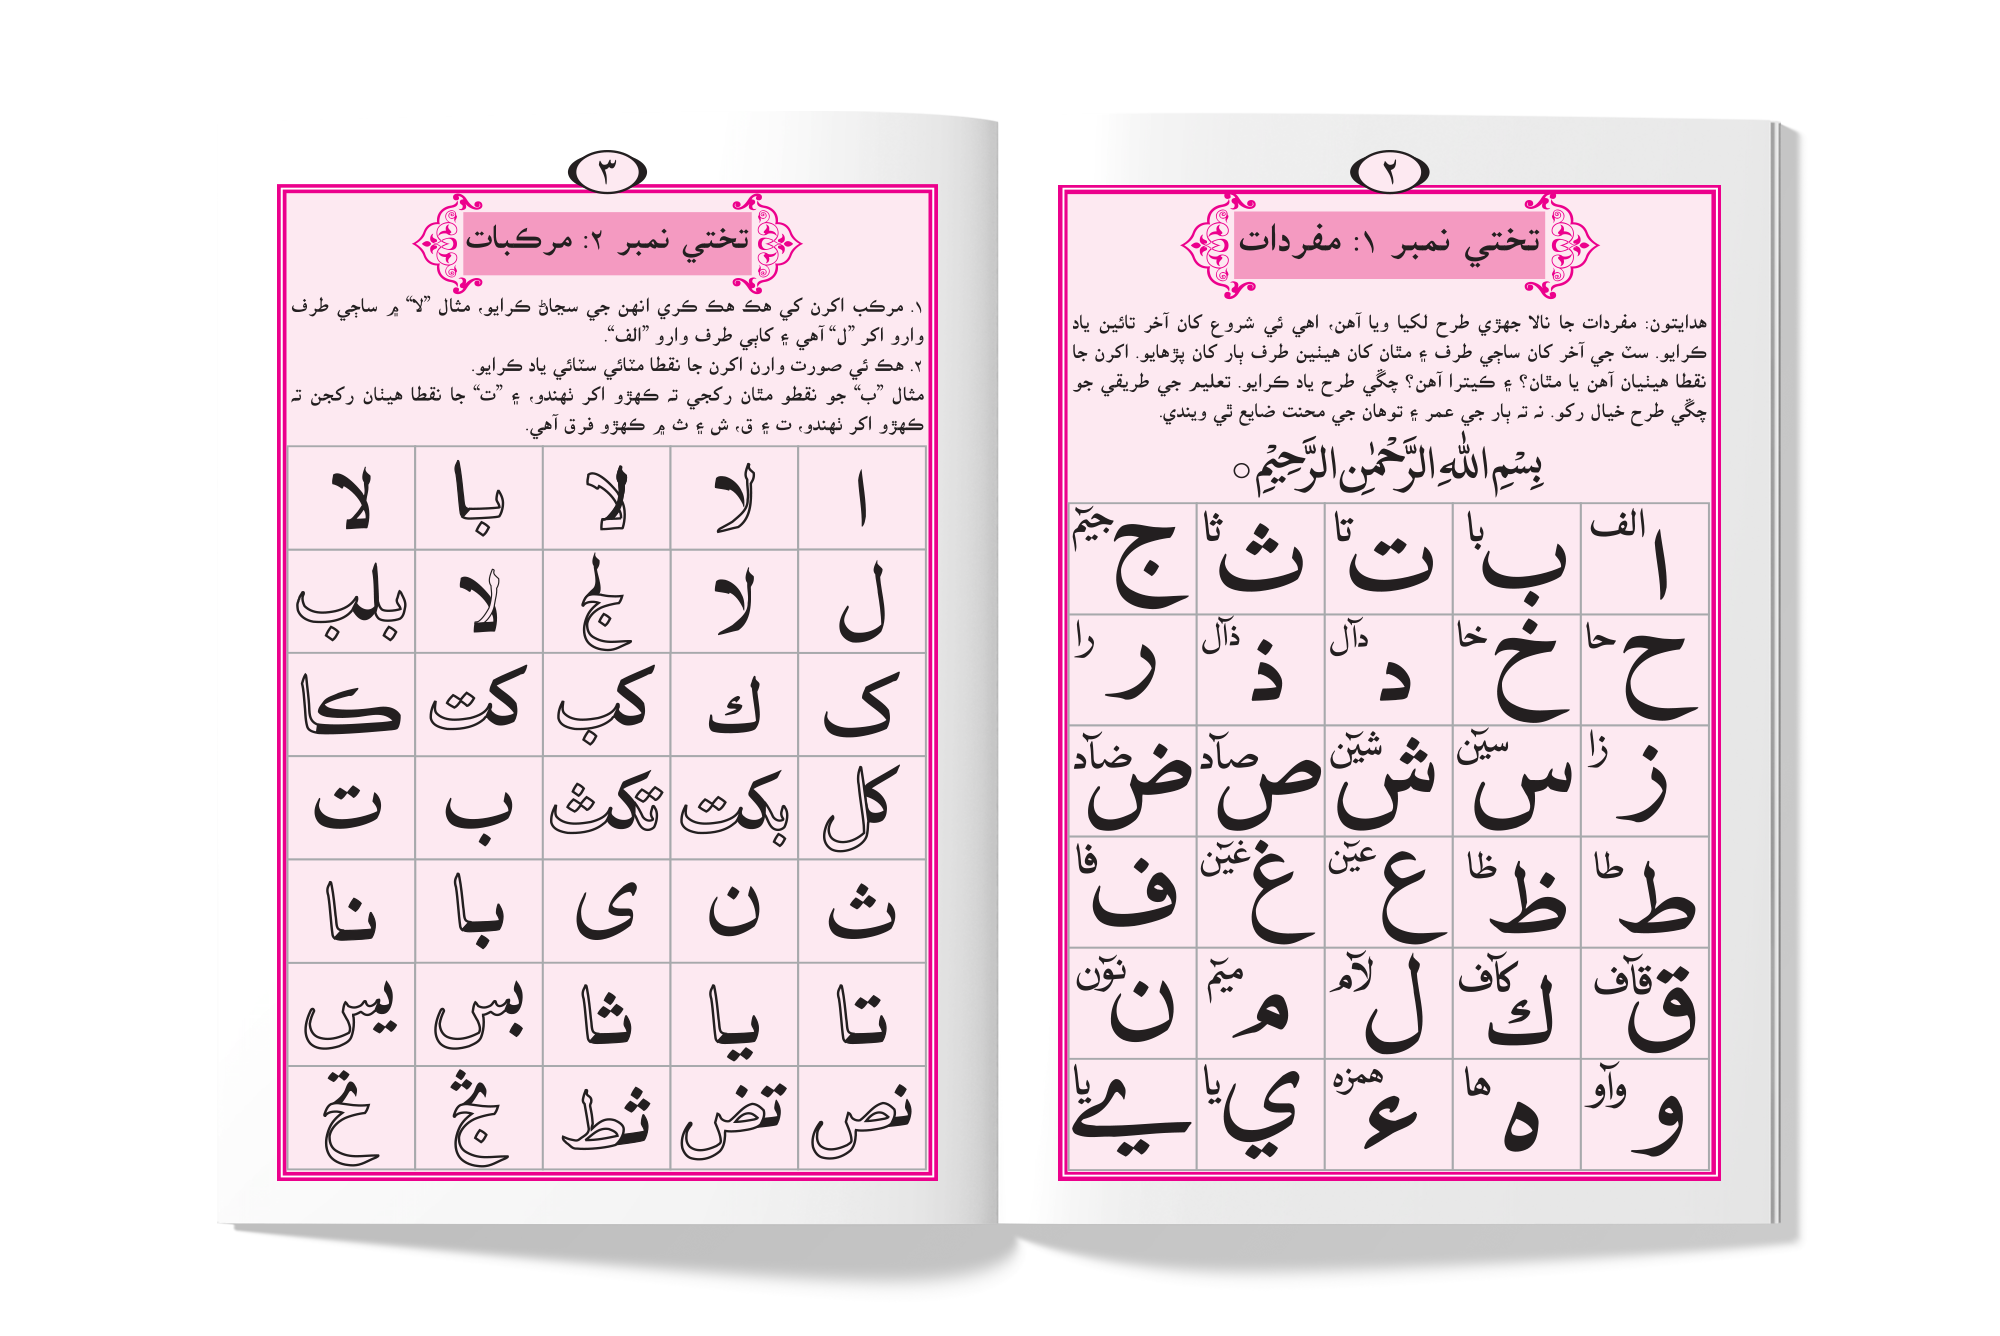 ٢
تختي نمبر ١: مفردات
هدايتون: مفردات جا نالا جهڙي طرح لکيا ويا آهن، اهي ئي شروع کان آخر تائين ياد
ڪرايو. سٽ جي آخر کان ساڄي طرف ۽ مٿان کان هيٺين طرف ٻار کان پڙهايو. اکرن جا
نقطا هيٺيان آهن يا مٿان؟ ۽ ڪيترا آهن؟ چڱي طرح ياد ڪرايو. تعليم جي طريقي جو
چڱي طرح خيال رکو. نہ تہ ٻار جي عمر ۽ توهان جي محنت ضايع ٿي ويندي.
بِسْمِ اللهِ الرَّحْمٰنِ الرَّحِيْمِ ○
ا الف ب با ت تا ث ثا ج جيٓم
ح حا خ خا د دآل ذ ذآل ر را
ز زا س سيٓن ش شيٓن ص صآد ض ضآد
ط طا ظ ظا ع عيٓن غ غيٓن ف فا
ق قآف ك كآف ل لآم م ميٓم ن نوٓن
و وآو ه ها ء همزه ي يا ے يا
٣
تختي نمبر ٢: مرڪبات
١. مرڪب اکرن کي هڪ هڪ ڪري انهن جي سڃاڻ ڪرايو، مثال ”لا“ ۾ ساڄي طرف
وارو اکر ”ل“ آهي ۽ کاٻي طرف وارو ”الف“.
٢. هڪ ئي صورت وارن اکرن جا نقطا مٽائي سٽائي ياد ڪرايو.
مثال ”ب“ جو نقطو مٿان رکجي تہ ڪهڙو اکر ٺهندو، ۽ ”ت“ جا نقطا هيٺان رکجن تہ
ڪهڙو اکر ٺهندو، ت ۽ ق، ش ۽ ث ۾ ڪهڙو فرق آهي.
ا لا لا با لا
ل لا لج لا بلب
ک ك كب كت كا
كل بكت تكث ب ت
ث ن ى با نا
تا يا ثا بس يس
نص تض ثط ثج تح